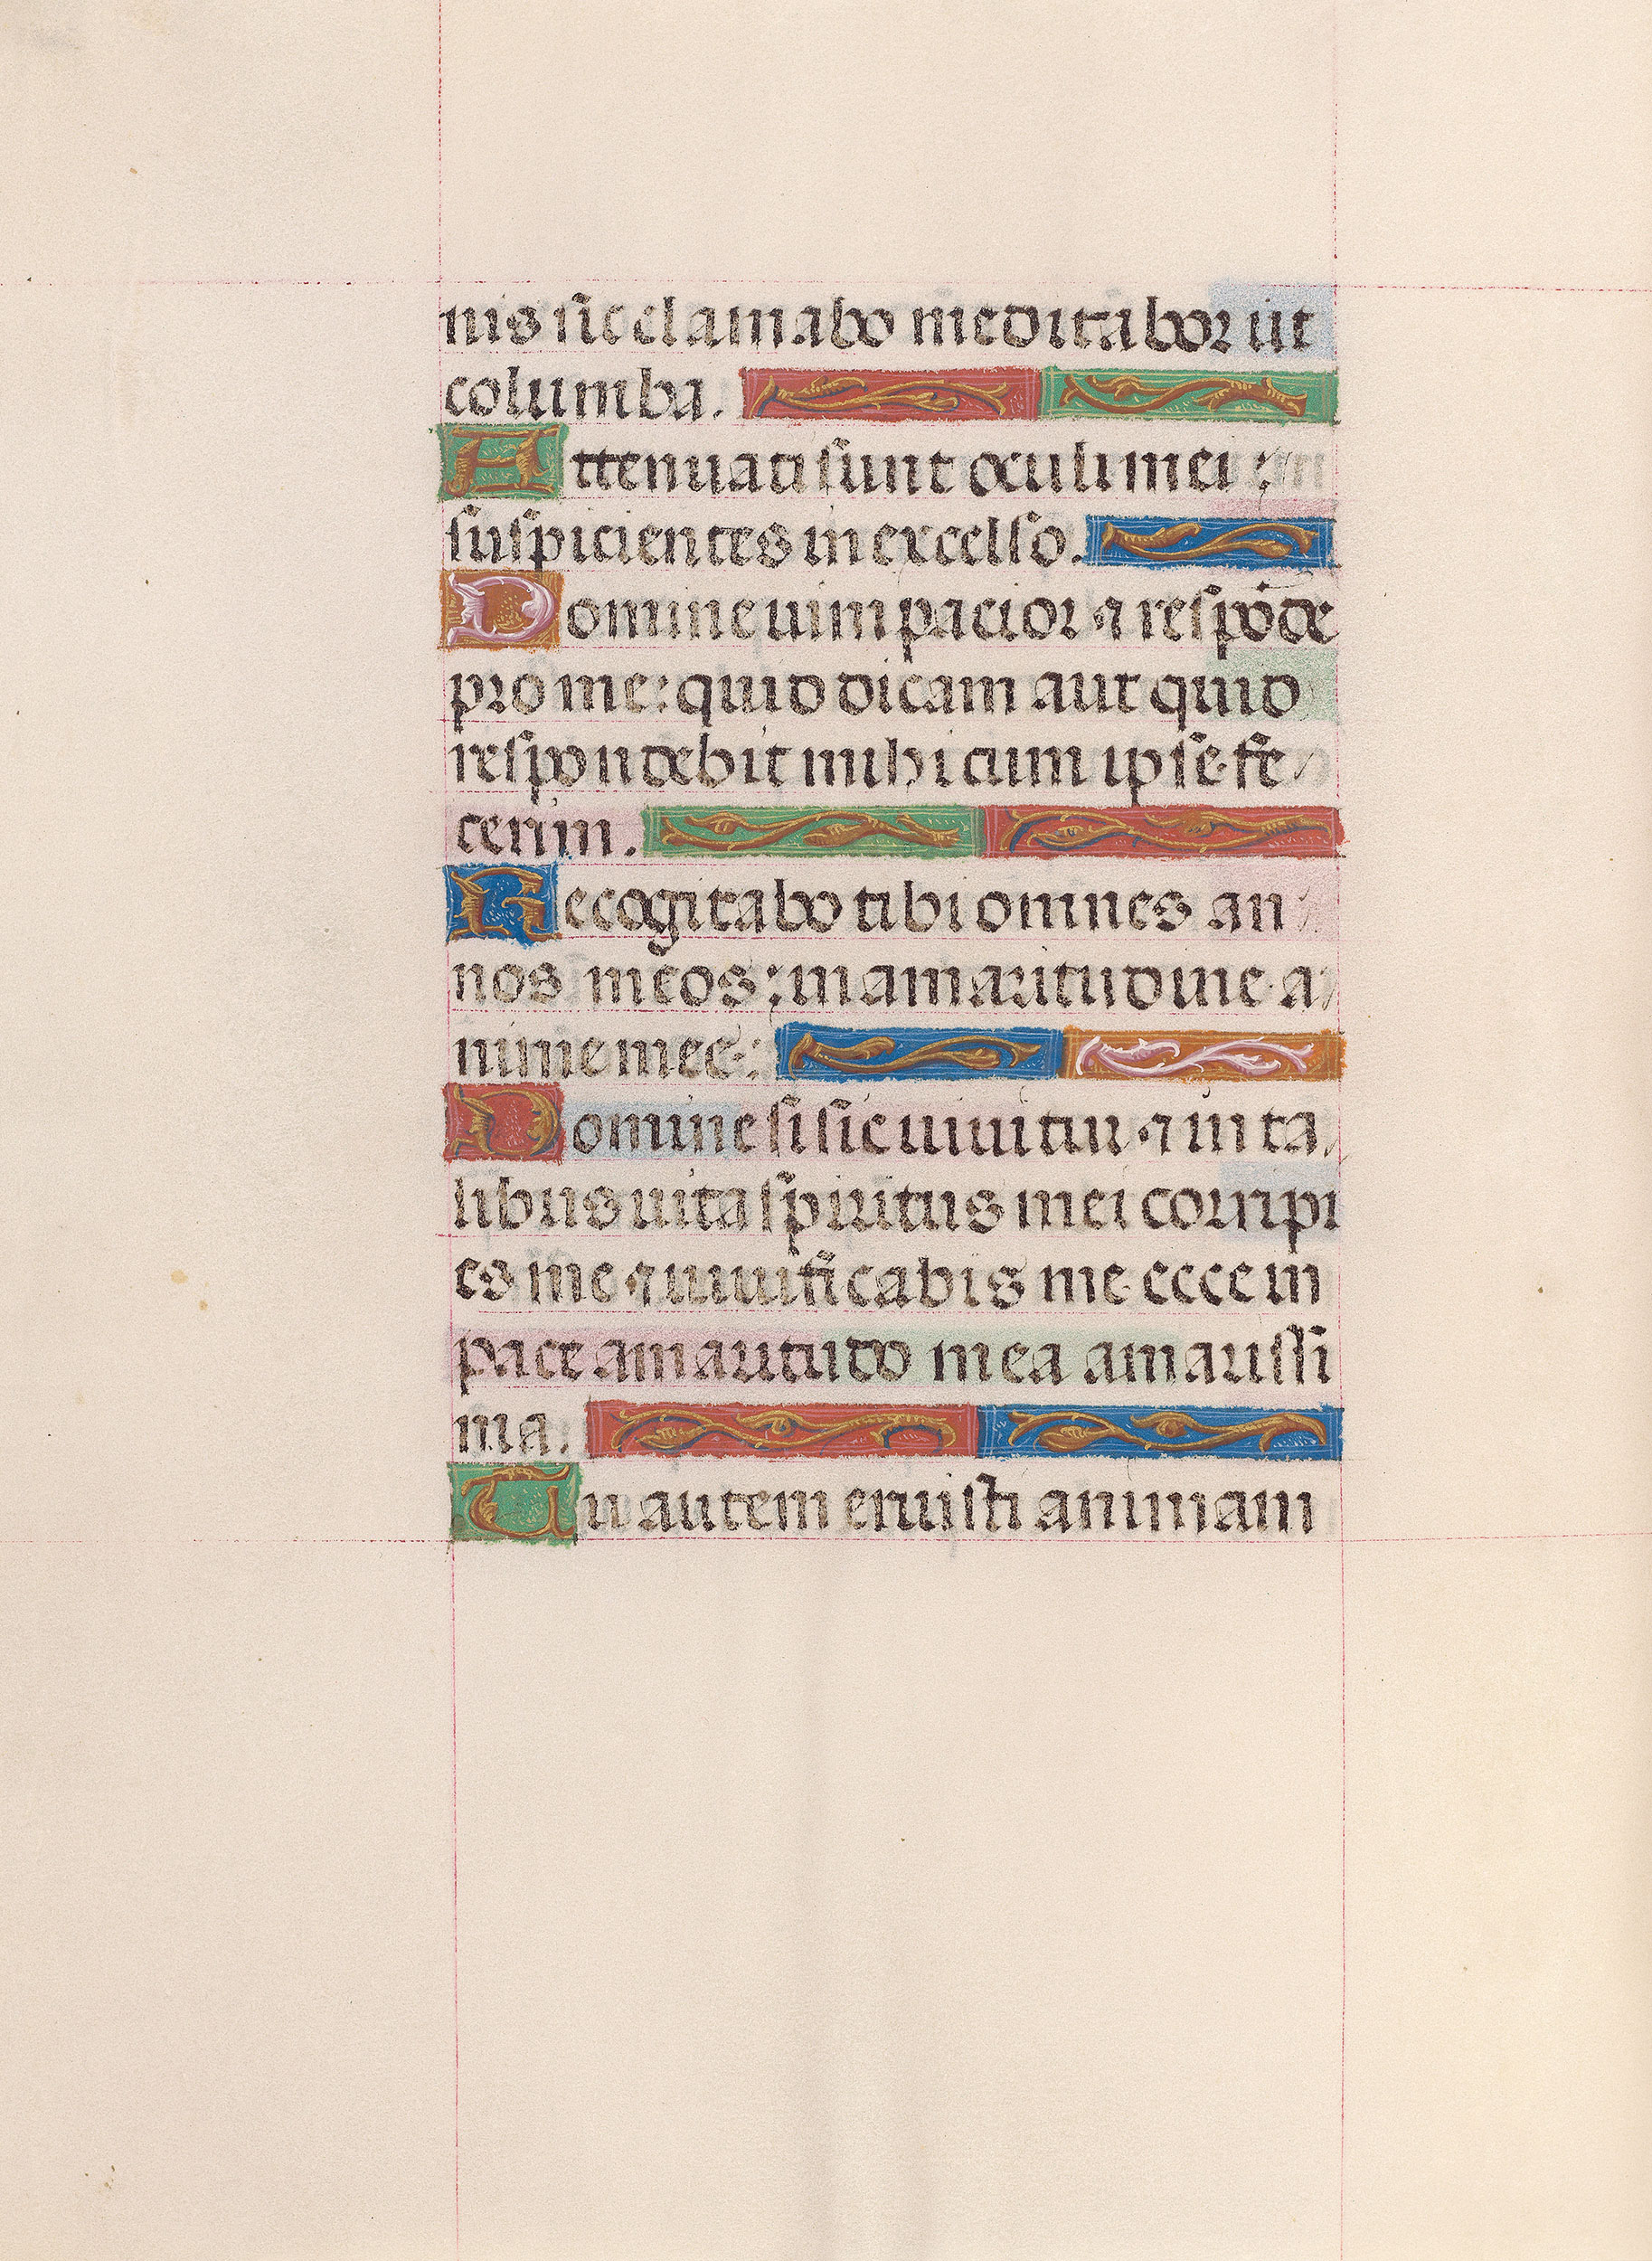 nis sic clamabo meditabor ut
columba.
Attenuati sunt oculi mei :
suspicientes in excelso.
Domine uim pacior ⁊ respōde
pro me: quid dicam aut quid
respondebit mihi cum ipse fe
cerim.
Recogitabo tibi omnes an
nos meos: in amaritudine a
nime mee:
Domine si sic uiuitur ⁊ in ta
libus uita spiritus mei corripi
es me ⁊ uiuificabis me ecce in
pace amaritudo mea amarissi
ma.
Tu autem eruisti animam